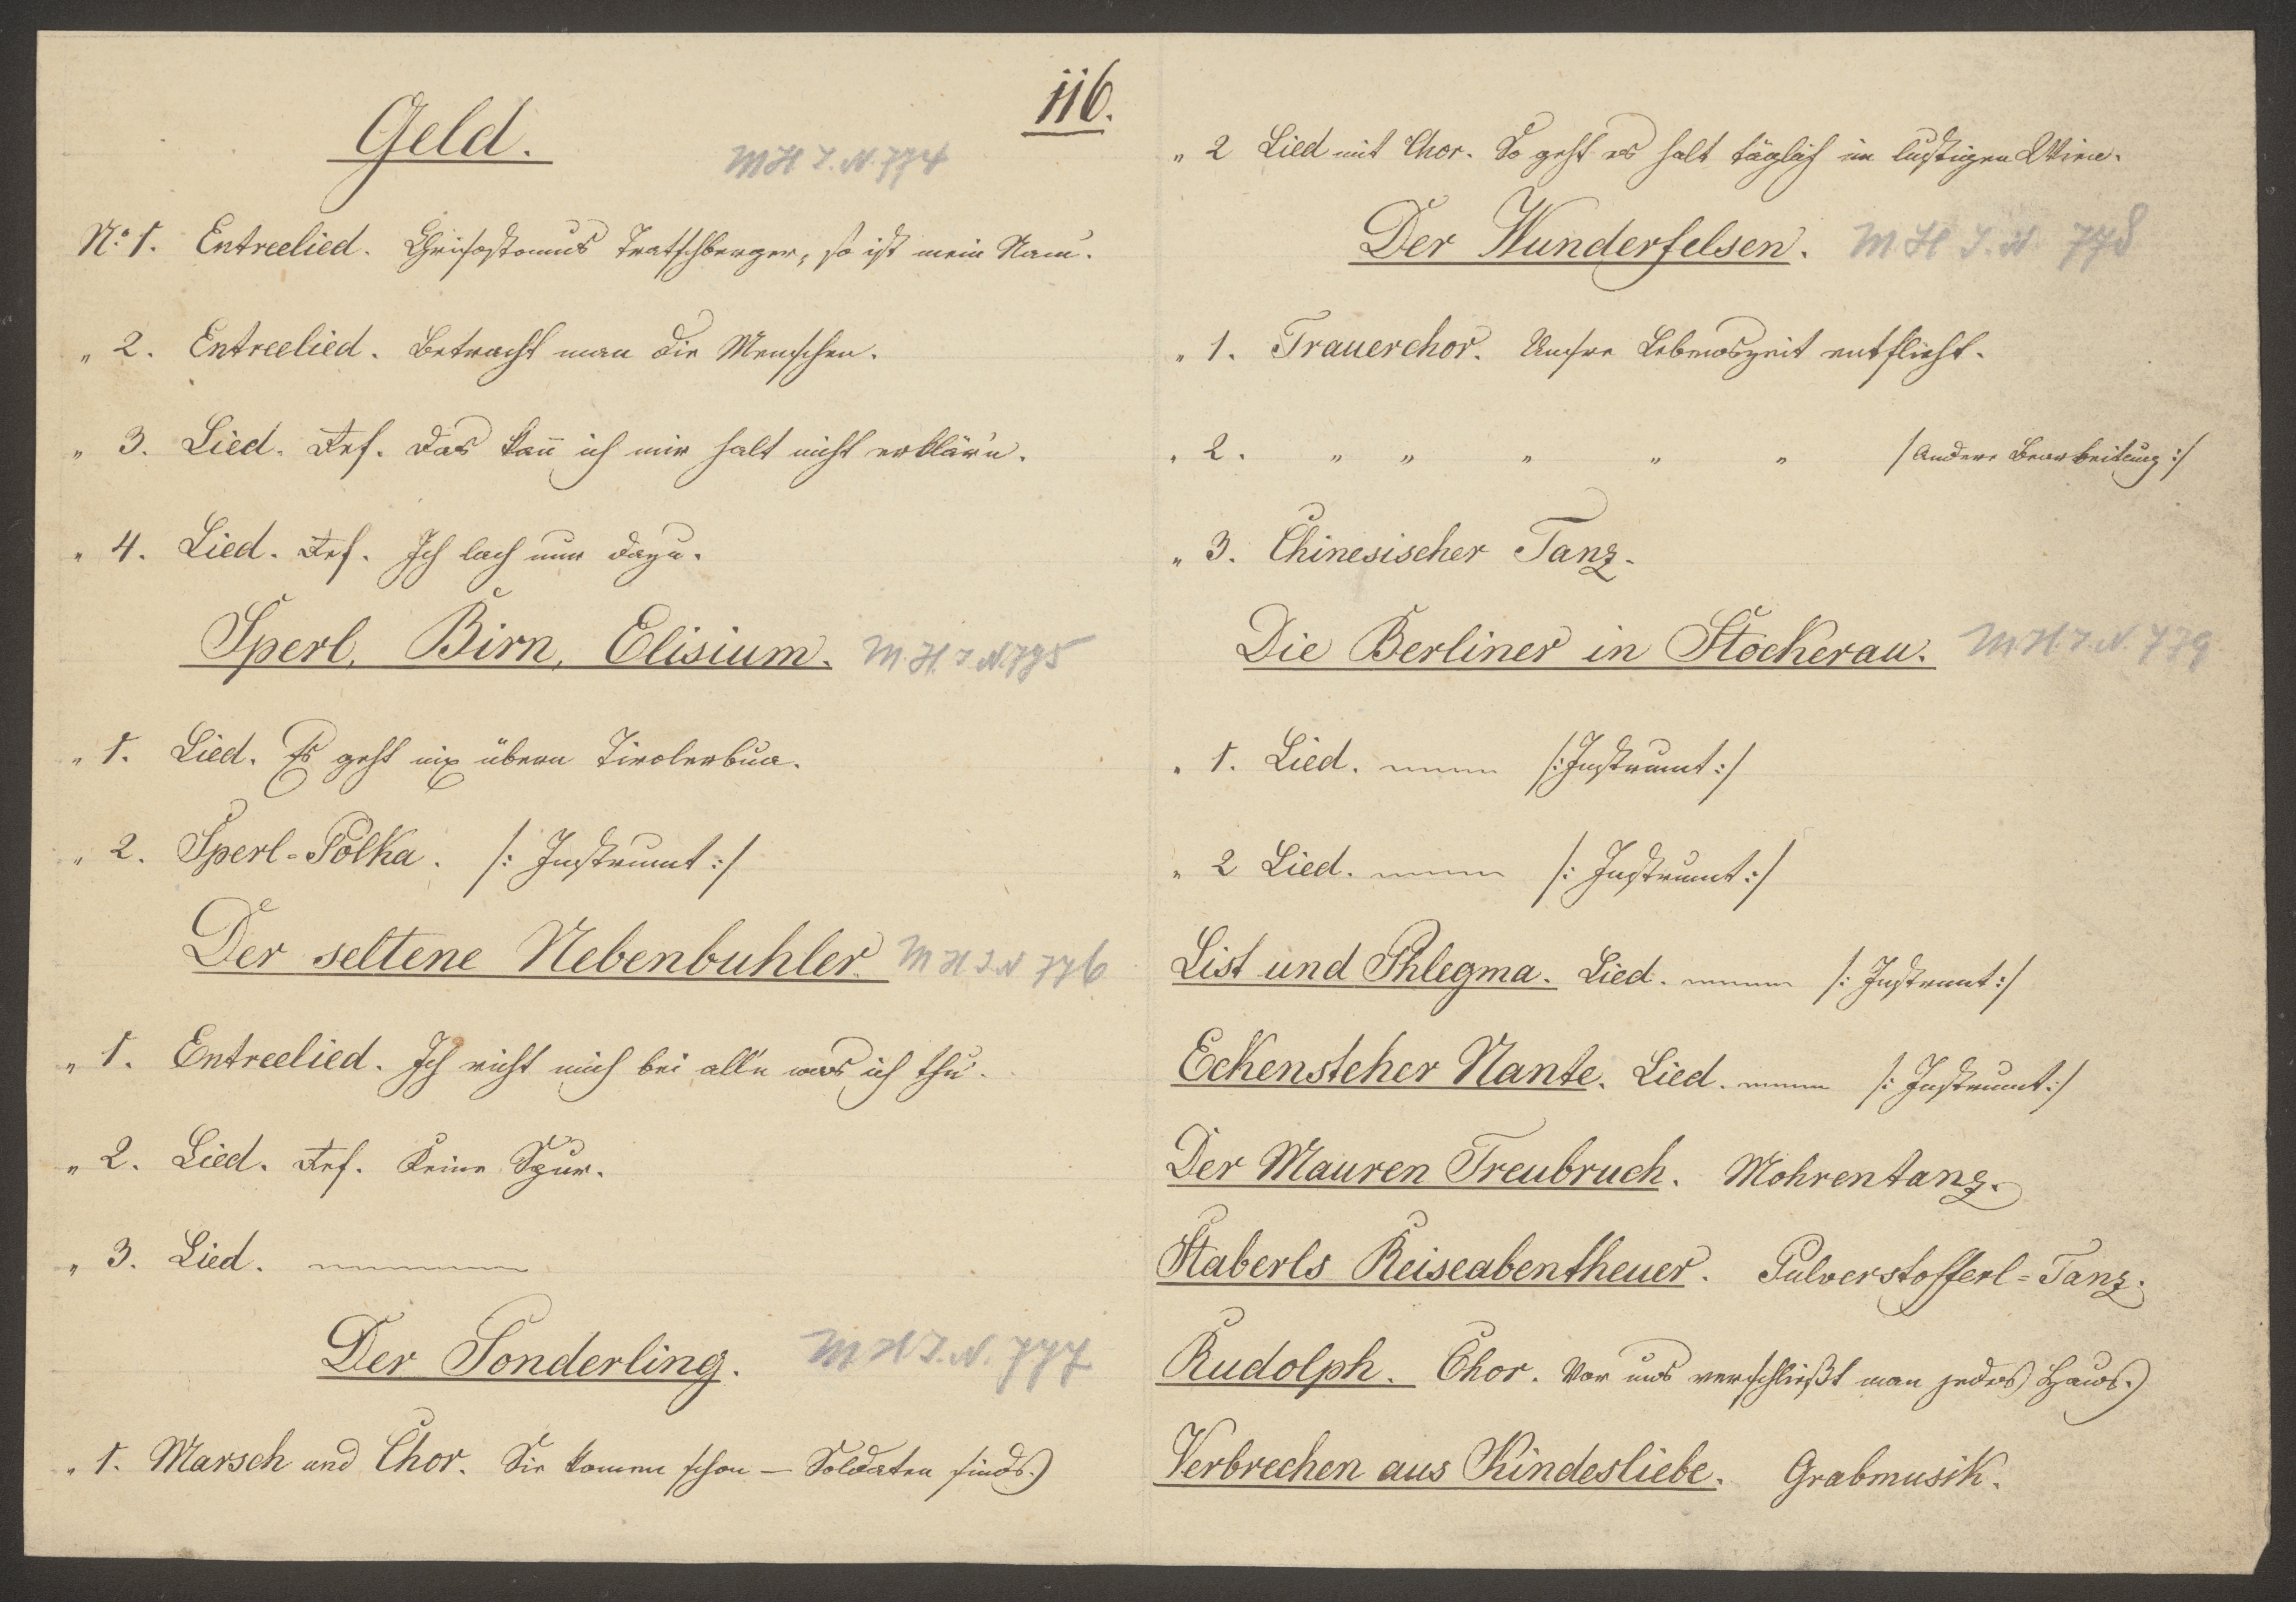 116.
Geld.
MH I. N. 774
No 1. Entreelied. Chrisostomus Tratschberger, so ist mein Nam'.
" 2. Entreelied. Betracht man die Menschen.
" 3. Lied. Ref. Das kañ ich mir halt nicht erklär'n.
" 4. Lied. Ref. Ich lach nur dazu.
Sperl, Birn, Elisium. M. H. I N 775
" 1. Lied. Es geht nix übern Tirolerbua.
" 2. Sperl=Polka. /: Instrumt :/
Der seltene Nebenbuhler. M H I N 776
" 1. Entreelied. Ich richt mich bei all'n was ich thu'.
" 2. Lied. Ref. Keine Spur.
" 3. Lied.
Der Sonderling. M H I. N. 777
" 1. Marsch und Chor. Sie komen schon — Soldaten sinds.
" 2 Lied mit Chor. So geht es halt täglich im lustigen Wien.
Der Wunderfelsen. M. H I. N. 778
" 1. Trauerchor. Unsre Lebenszeit entflieht.
" 2. " " " " " / Andere Bearbeitung :/
" 3. Chinesischer Tanz.
Die Berliner in Stockerau. M. H. I. N. 779
" 1. Lied. /: Instrumt :/
" 2 Lied. /: Instrumt :/
List und Phlegma. Lied. /: Instrumt :/
Eckensteher Nante. Lied. /: Instrumt :/
Der Mauren Treubruch. Mohrentanz.
Staberls Reiseabentheuer. Pulverstofferl=Tanz.
Rudolph. Chor. Vor uns verschließt man jedes Haus.
Verbrechen aus Kindesliebe. Grabmusik.